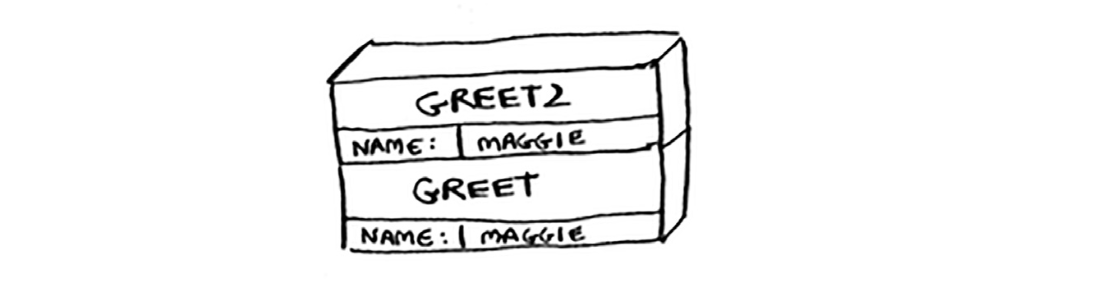 GREET2
NAME: MAGGIE
GREET
NAME: MAGGIE